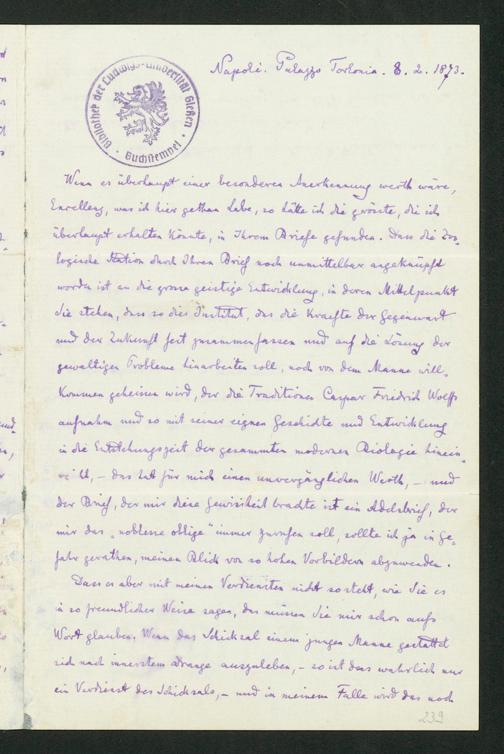 Napoli. Palazzo Torlonia. 8. 2. 1873.
Bibliothek der Ludwigs-Universität Gießen
· Buchstempel ·
Wenn es überhaupt einer besonderen Anerkennung werth wäre,
Excellenz, was ich hier gethan habe, so hätte ich die grösste, die ich
überhaupt erhalten könnte, in Ihrem Briefe gefunden. Dass die Zoo-
logische Station durch Ihren Brief noch unmittelbar angeknüpft
worden ist an die grosse geistige Entwicklung, in deren Mittelpunkt
Sie stehen, dass so dies Institut, das die Kraefte der Gegenwart
und der Zukunft fest zusammenfassen und auf die Lösung der
gewaltigen Probleme hinarbeiten soll, noch von dem Manne will-
kommen geheissen wird, der die Traditionen Caspar Friedrich Wolffs
aufnahm und so mit seiner eignen Geschichte und Entwicklung
in die Entstehungszeit der gesammten modernen Biologie hinein-
reicht, – das hat für mich einen unvergänglichen Werth, – und
der Brief, der mir diese Gewissheit brachte ist ein Adelsbrief, der
mir das „noblesse oblige" immer zurufen soll, sollte ich ja in Ge-
fahr gerathen, meinen Blick von so hohen Vorbildern abzuwenden.
Dass es aber mit meinen Verdiensten nicht so steht, wie Sie es
in so freundlicher Weise sagen, das müssen Sie mir schon aufs
Wort glauben. Wenn das Schicksal einem jungen Manne gestattet
sich nach innerstem Drange auszuleben, – so ist das wahrlich nur
ein Verdienst des Schicksals, – und in meinem Falle wird das noch
239